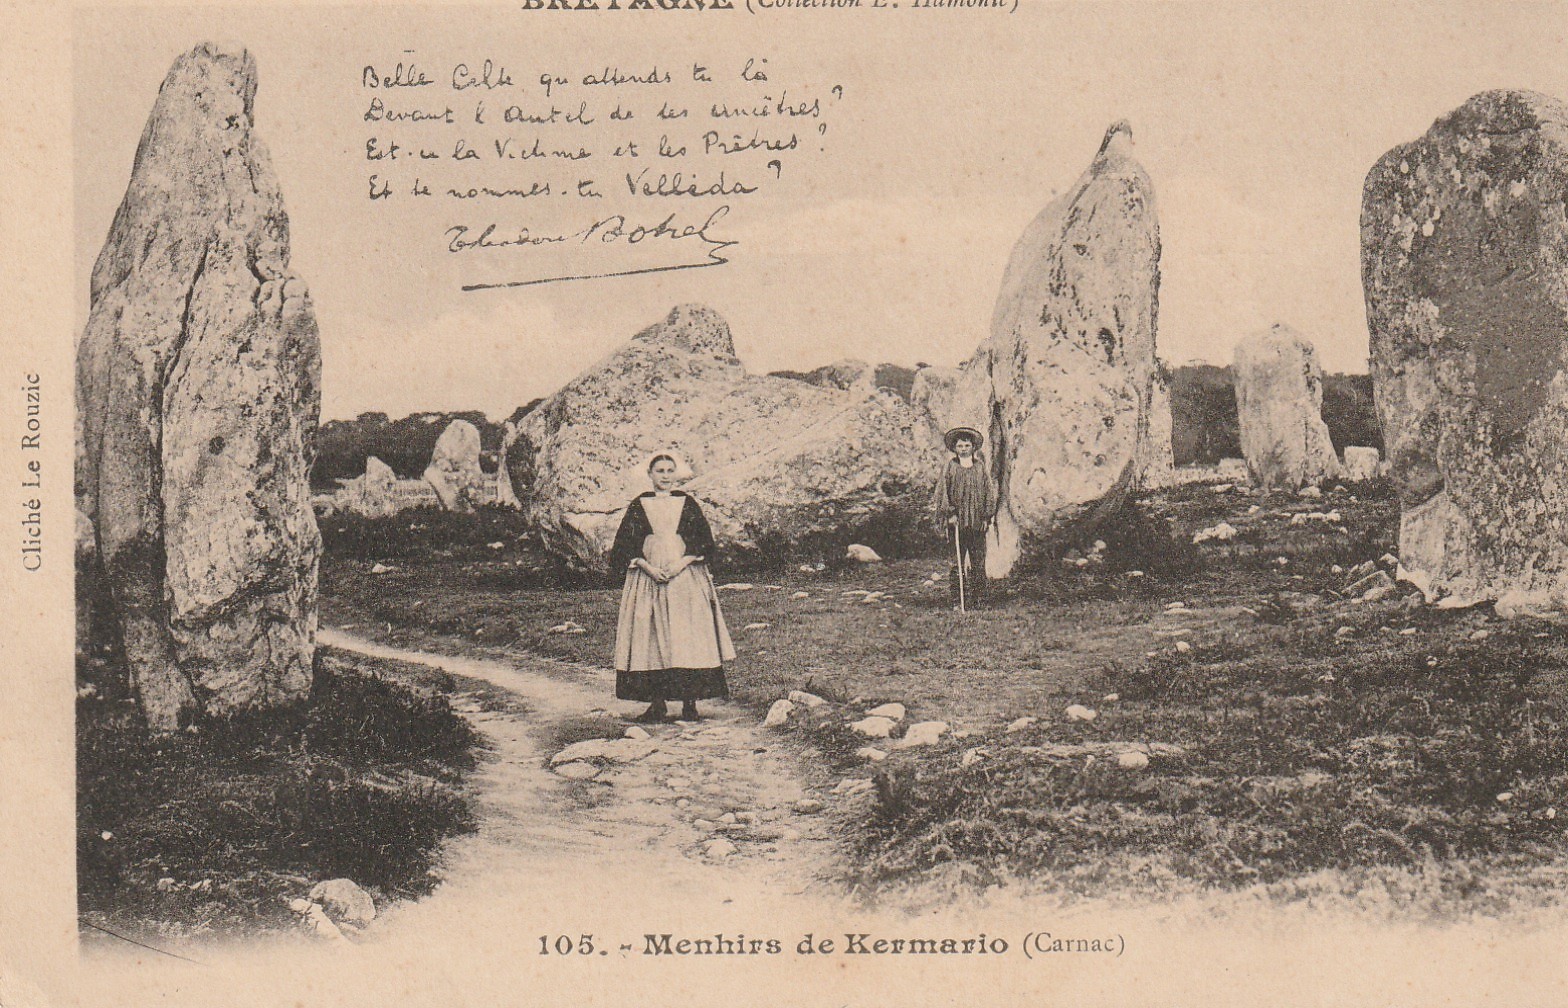 BRETAGNE (Collection E. Hamonic)
Belle Celte qu attends tu là
Devant l'Autel de tes ancêtres?
Es-tu la Victime et les Prêtres?
Et te nommes-tu Velléda?
Théodore Botrel
Cliché Le Rouzic
105. - Menhirs de Kermario (Carnac)